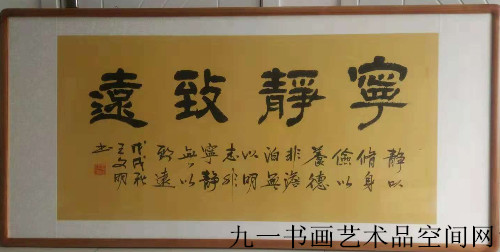 寧靜致遠
靜以
脩身
儉以
養德
非澹
泊無
以明
志非
寧靜
無以
致遠
戊戌秋
王文明
书
九一书画艺术品空间网